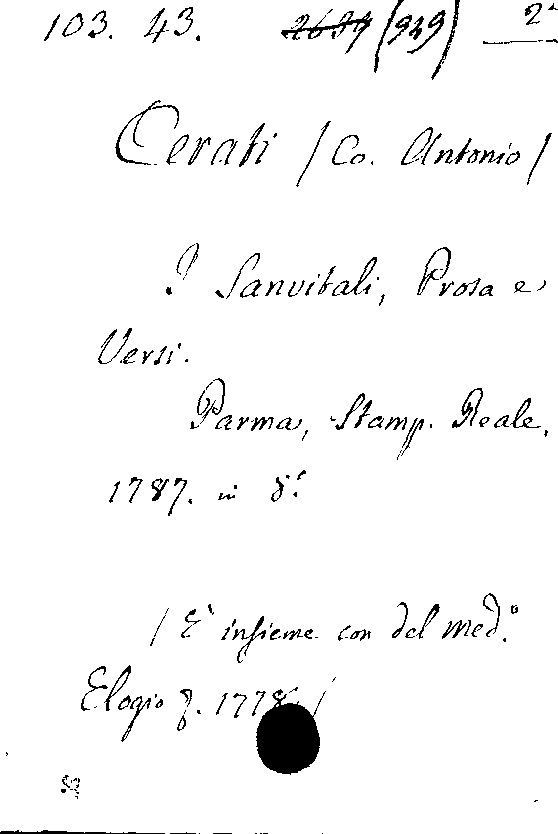 103. 43. 2639 (949) 2ª
Cerati / Co. Antonio /
I Sanvitali, Prosa e
Versi.
Parma, Stamp. Reale,
1787. in 8.º
/ E' insieme con del med.º
Elogio &. 1778. /